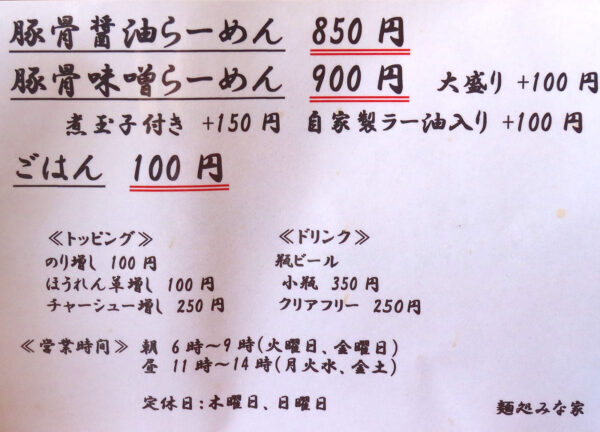 豚骨醤油らーめん 850 円
豚骨味噌らーめん 900 円 大盛り +100 円
煮玉子付き +150 円 自家製ラー油入り +100 円
ごはん 100 円
≪トッピング≫
のり増し 100 円
ほうれん草増し 100 円
チャーシュー増し 250 円
≪ドリンク≫
瓶ビール
小瓶 350 円
クリアフリー 250円
≪営業時間≫ 朝 6 時～9 時(火曜日、金曜日)
昼 11 時～14 時(月火水、金土)
定休日:木曜日、日曜日
麺処みな家